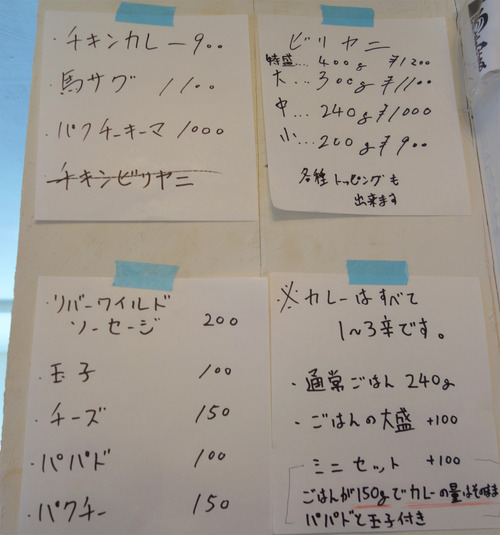 ・チキンカレー 900
馬サグ 1100
・パクチーキーマ 1000
・チキンビリヤニ
ビリヤニ
特盛…400g ¥1200
大…300g ¥1100
中…240g ¥1000
小…200g ¥900
各種トッピングも
出来ます
・リバーワイルド
ソーセージ 200
・玉子 100
・チーズ 150
・パパド 100
・パクチー 150
※カレーはすべて
1〜3辛です。
・通常ごはん 240g
・ごはんの大盛 +100
ミニセット +100
ごはんが150gでカレーの量はそのまま
パパドと玉子付き